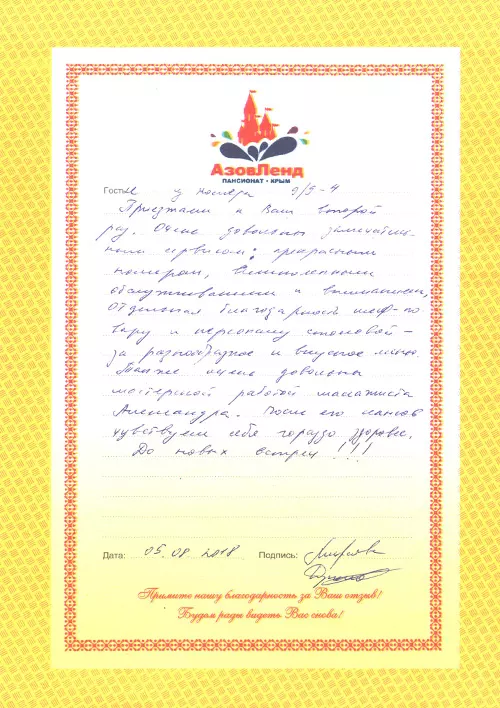 АзовЛенд
ПАНСИОНАТ • КРЫМ
Гости из номера 9/3-4
Приезжаем к Вам второй
раз. Очень довольны замечатель-
ным сервисом: прекрасным
номером, великолепным
обслуживанием и вниманием,
Отдельная благодарность шеф-по
вару и персоналу столовой -
за разнообразное и вкусное меню.
Также очень довольны
мастерской работой массажиста
Александра. После его сеансов
чувствуем себя гораздо здоровее.
До новых встреч!!!
Дата: 05.08.2018 Подпись:
Примите нашу благодарность за Ваш отзыв!
Будем рады видеть Вас снова!